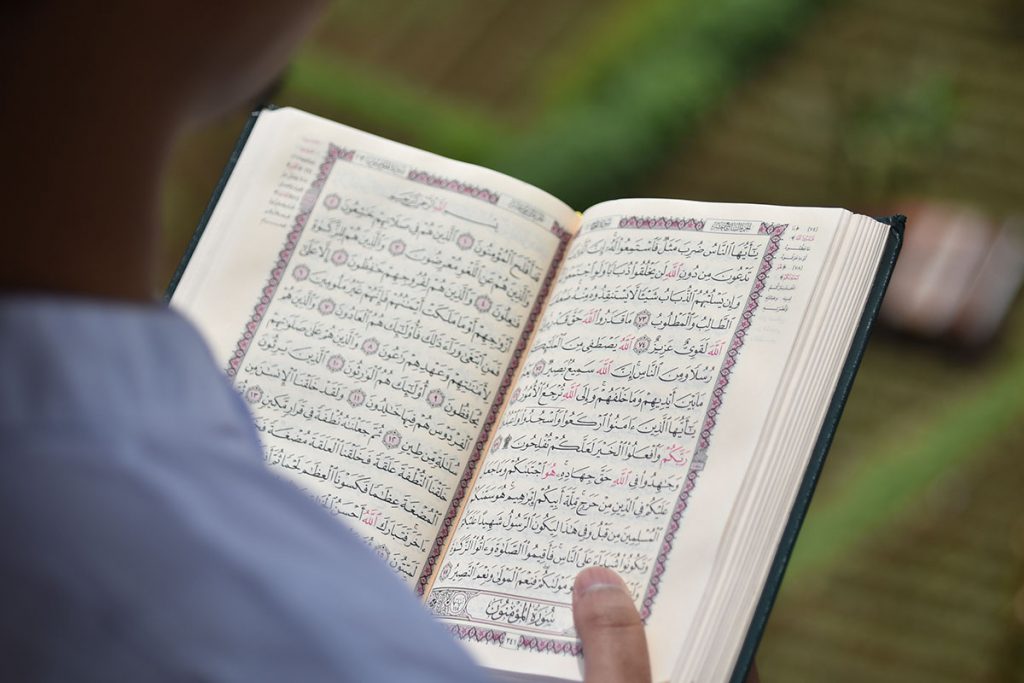 يَٰٓأَيُّهَا ٱلنَّاسُ ضُرِبَ مَثَلٌ فَٱسْتَمِعُوا۟ لَهُۥٓ إِنَّ
تَدْعُونَ مِن دُونِ ٱللَّهِ لَن يَخْلُقُوا۟ ذُبَابًا وَلَوِ ٱجْتَمَعُوا۟
وَإِن يَسْلُبْهُمُ ٱلذُّبَابُ شَيْـًٔا لَّا يَسْتَنقِذُوهُ مِنْهُ
ٱلطَّالِبُ وَٱلْمَطْلُوبُ ٧٣ مَا قَدَرُوا۟ ٱللَّهَ حَقَّ قَدْرِهِ
ٱللَّهَ لَقَوِىٌّ عَزِيزٌ ٧٤ ٱللَّهُ يَصْطَفِى مِنَ ٱلْمَلَٰٓئِكَةِ
رُسُلًا وَمِنَ ٱلنَّاسِ إِنَّ ٱللَّهَ سَمِيعٌۢ بَصِيرٌ ٧٥
مَا بَيْنَ أَيْدِيهِمْ وَمَا خَلْفَهُمْ وَإِلَى ٱللَّهِ تُرْجَعُ ٱلْأُمُورُ
يَٰٓأَيُّهَا ٱلَّذِينَ ءَامَنُوا۟ ٱرْكَعُوا۟ وَٱسْجُدُوا۟ وَٱعْبُدُوا۟
رَبَّكُمْ وَٱفْعَلُوا۟ ٱلْخَيْرَ لَعَلَّكُمْ تُفْلِحُونَ
وَجَٰهِدُوا۟ فِى ٱللَّهِ حَقَّ جِهَادِهِۦ هُوَ ٱجْتَبَىٰكُمْ وَمَا جَعَلَ
عَلَيْكُمْ فِى ٱلدِّينِ مِنْ حَرَجٍ مِّلَّةَ أَبِيكُمْ إِبْرَٰهِيمَ هُوَ سَمَّىٰكُمُ
ٱلْمُسْلِمِينَ مِن قَبْلُ وَفِى هَٰذَا لِيَكُونَ ٱلرَّسُولُ شَهِيدًا عَلَيْكُمْ
وَتَكُونُوا۟ شُهَدَآءَ عَلَى ٱلنَّاسِ فَأَقِيمُوا۟ ٱلصَّلَوٰةَ وَءَاتُوا۟ ٱلزَّكَوٰةَ
مَوْلَىٰكُمْ فَنِعْمَ ٱلْمَوْلَىٰ وَنِعْمَ ٱلنَّصِيرُ ٧٨
سُورَةُ المُؤْمِنُونَ
٣٤١
قَدْ أَفْلَحَ ٱلْمُؤْمِنُونَ ١ ٱلَّذِينَ هُمْ فِى صَلَاتِهِمْ خَٰشِعُونَ ٢
وَٱلَّذِينَ هُمْ عَنِ ٱللَّغْوِ مُعْرِضُونَ ٣ وَٱلَّذِينَ هُمْ لِلزَّكَوٰةِ
فَٰعِلُونَ ٤ وَٱلَّذِينَ هُمْ لِفُرُوجِهِمْ حَٰفِظُونَ ٥ إِلَّا عَلَىٰٓ
أَزْوَٰجِهِمْ أَوْ مَا مَلَكَتْ أَيْمَٰنُهُمْ فَإِنَّهُمْ غَيْرُ مَلُومِينَ ٦
فَمَنِ ٱبْتَغَىٰ وَرَآءَ ذَٰلِكَ فَأُو۟لَٰٓئِكَ هُمُ ٱلْعَادُونَ ٧ وَٱلَّذِينَ هُمْ
لِأَمَٰنَٰتِهِمْ وَعَهْدِهِمْ رَٰعُونَ ٨ وَٱلَّذِينَ هُمْ عَلَىٰ صَلَوَٰتِهِمْ
يُحَافِظُونَ ٩ أُو۟لَٰٓئِكَ هُمُ ٱلْوَٰرِثُونَ ١٠ ٱلَّذِينَ يَرِثُونَ
ٱلْفِرْدَوْسَ هُمْ فِيهَا خَٰلِدُونَ ١١ وَلَقَدْ خَلَقْنَا ٱلْإِنسَٰنَ مِن
سُلَٰلَةٍ مِّن طِينٍ ١٢ ثُمَّ جَعَلْنَٰهُ نُطْفَةً فِى قَرَارٍ مَّكِينٍ ١٣
خَلَقْنَا ٱلنُّطْفَةَ عَلَقَةً فَخَلَقْنَا ٱلْعَلَقَةَ مُضْغَةً
ٱلْمُضْغَةَ عِظَٰمًا فَكَسَوْنَا ٱلْعِظَٰمَ لَحْمًا ثُمَّ
ءَاخَرَ فَتَبَارَكَ ٱللَّهُ أَحْسَنُ